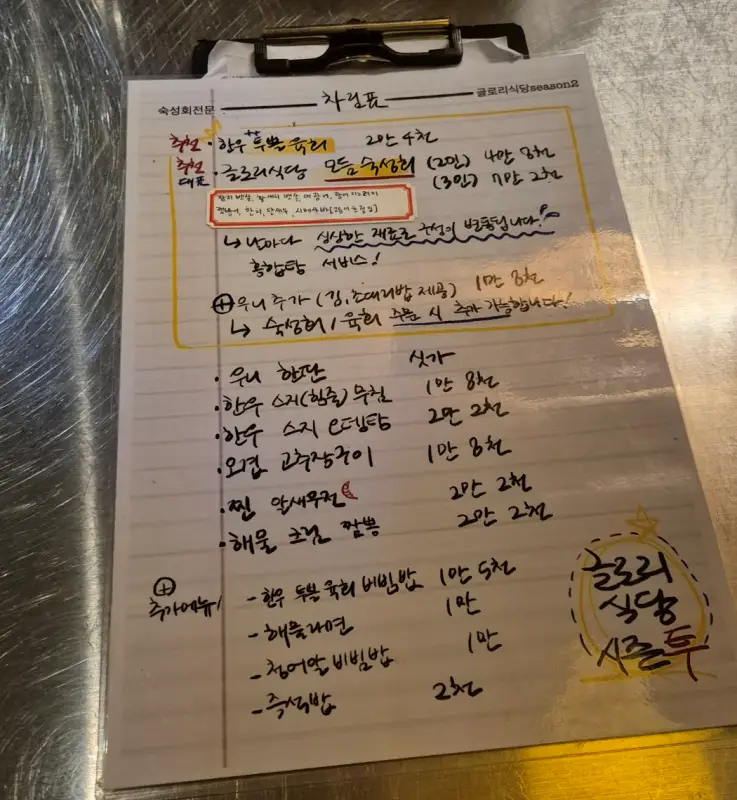 차림표
숙성회전문
글로리식당season2
추천 · 한우 투뿔 육회 2만 4천
추천 대표 · 글로리식당 모듬 숙성회 (2인) 4만 8천
(3인) 7만 2천
↳ 날마다 싱싱한 재료로 구성이 변동됩니다!
홍합탕 서비스!
⊕ 우니 추가 (김, 초대리밥 제공) 1만 8천
↳ 숙성회 / 육회 주문 시 추가 가능합니다!
· 우니 한판 싯가
· 한우 스지(힘줄) 무침 1만 8천
· 한우 스지 오뎅탕 2만 2천
· 고추장구이 1만 8천
· 찐 알새우전 2만 2천
· 해물 크림 짬뽕 2만 2천
⊕ 추가메뉴!
- 한우 투뿔 육회 비빔밥 1만 5천
- 해물라면 1만
- 청어알 비빔밥 1만
- 즉석밥 2천
글로리
식당
시즌투